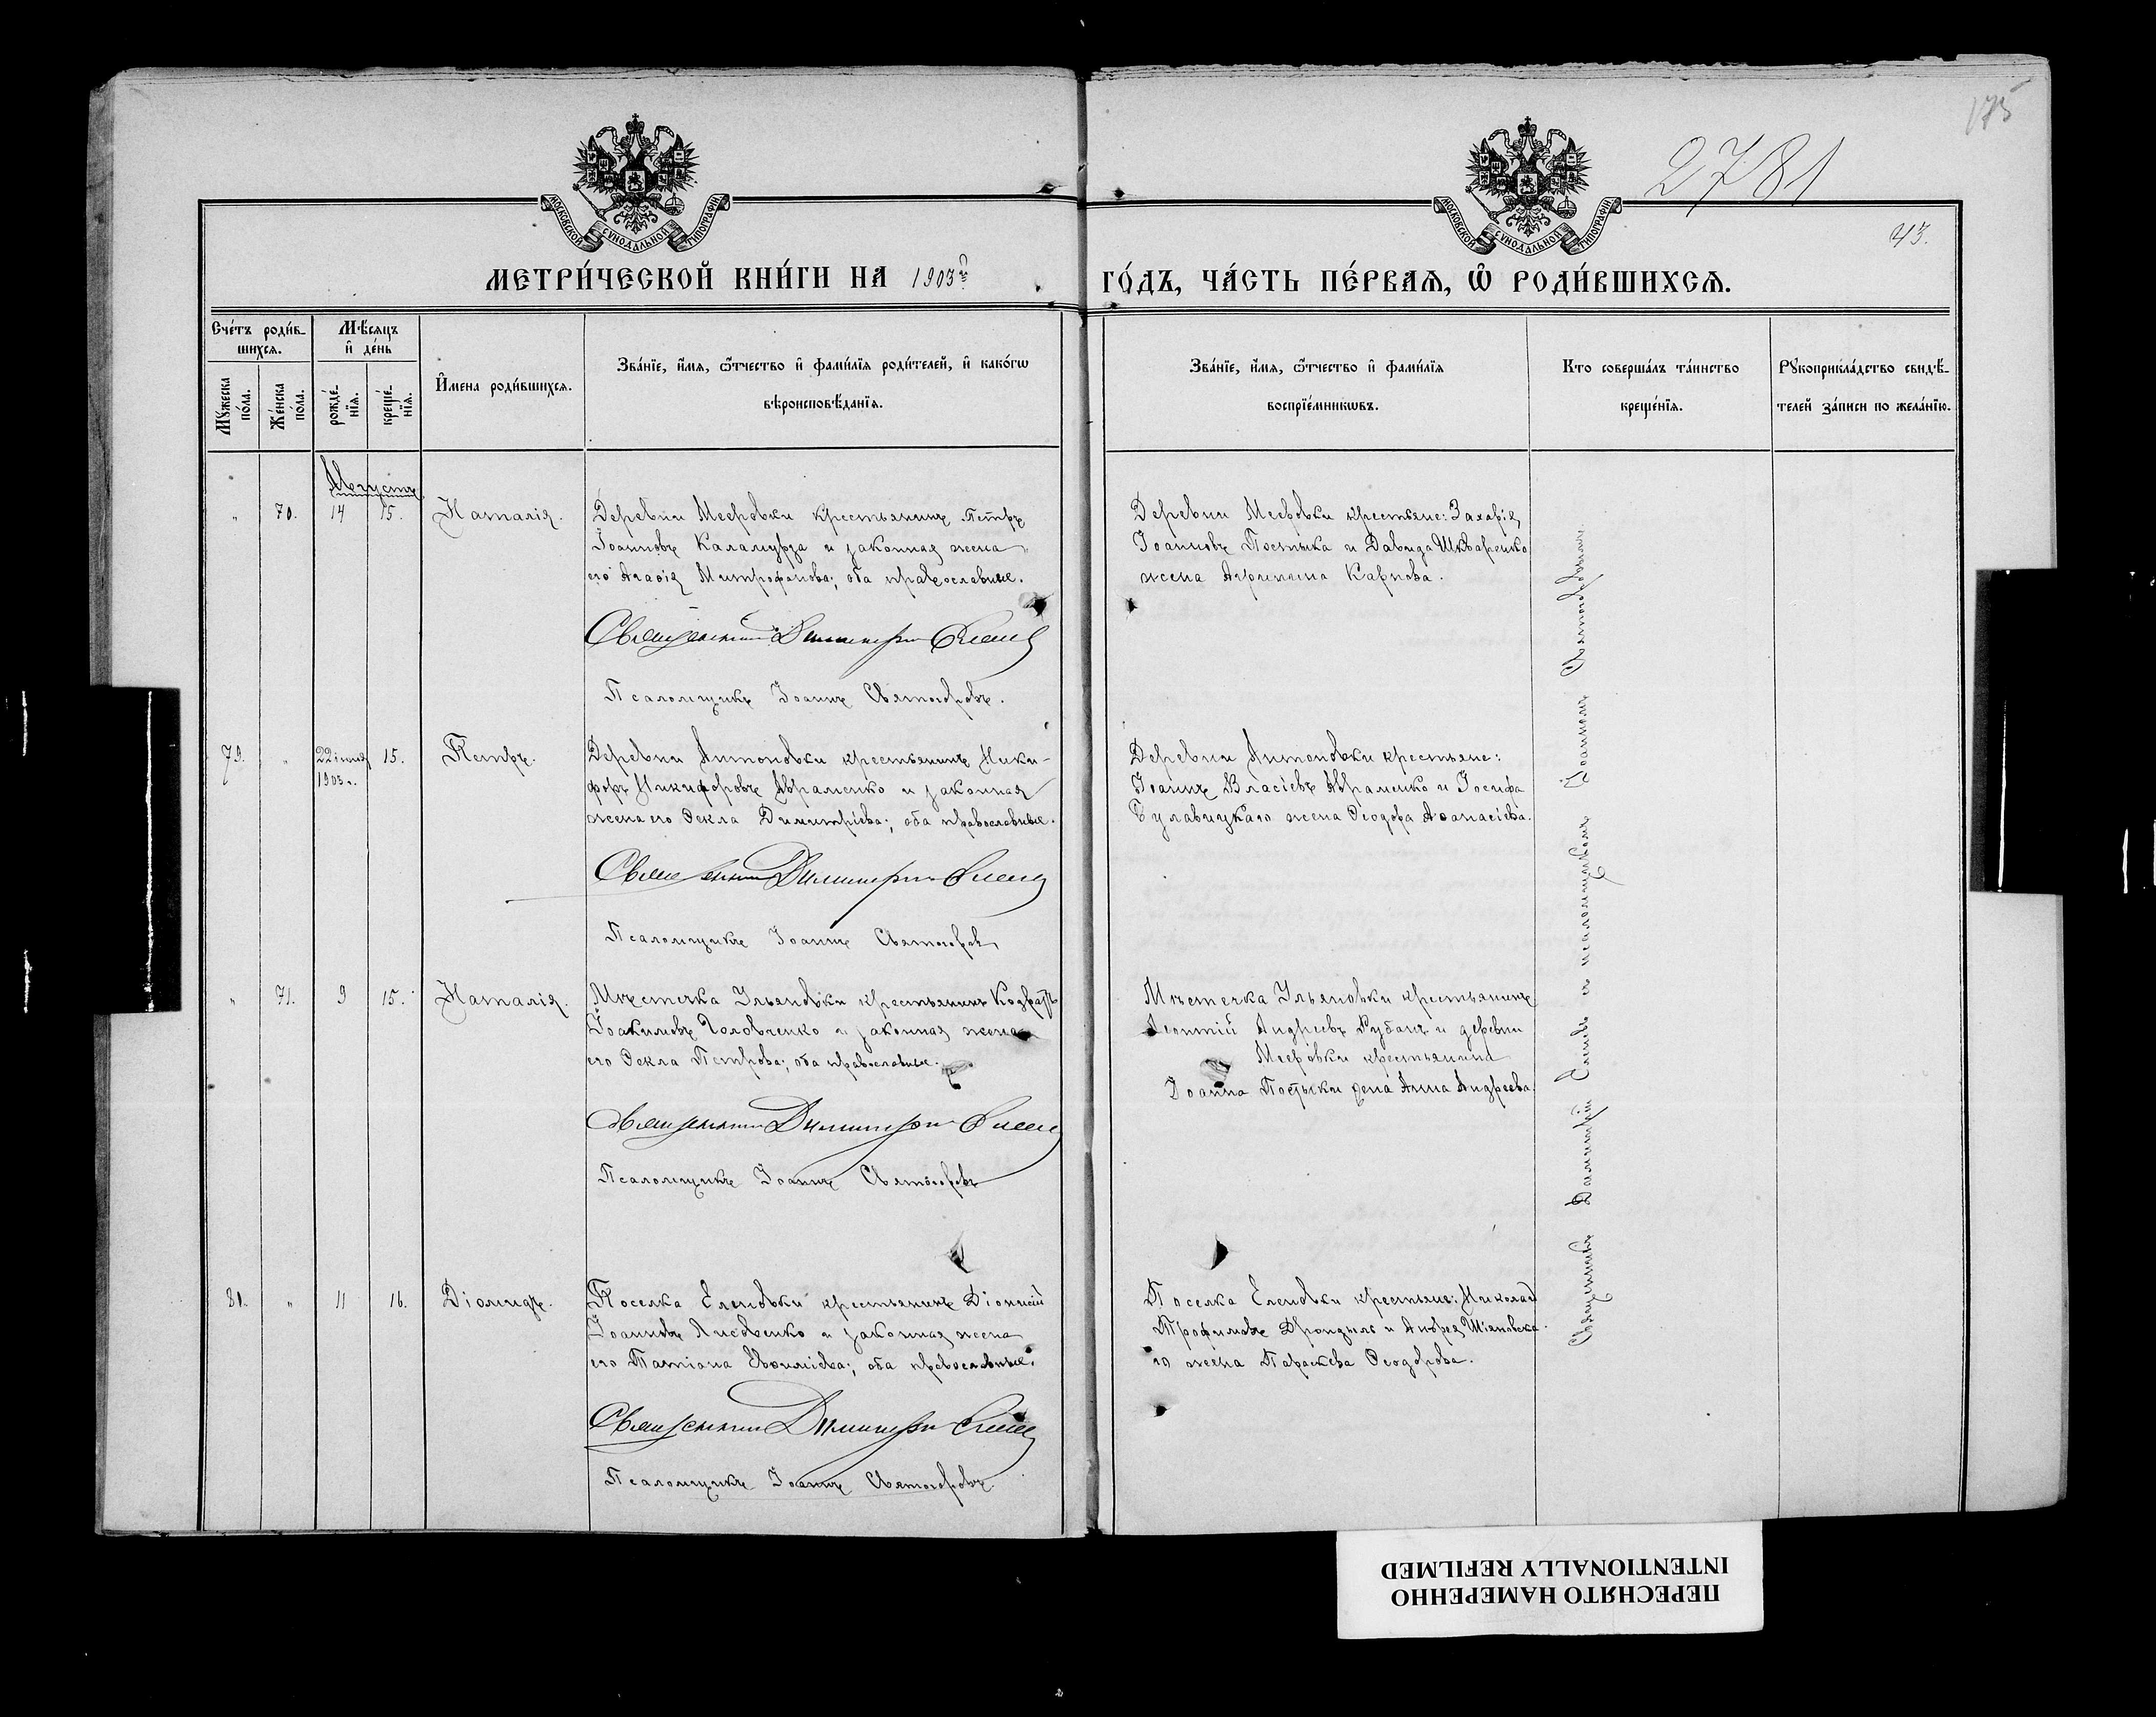 175
2781
43.
МОСКОВСКОЙ СѴНОДАЛЬНОЙ ТИПОГРАФІИ
МОСКОВСКОЙ СѴНОДАЛЬНОЙ ТИПОГРАФІИ
МЕТРИ́ЧЕСКОЙ КНИ́ГИ НА 1903й ГО́ДЪ, ЧА́СТЬ ПЕ́РВАѦ, Ѽ РОДИ́ВШИХСѦ.
Сче́тъ роди́в-
шихсѧ.
Мꙋ́жеска
по́ла.
Же́нска
по́ла.
Мѣ́сѧцъ
и҆ де́нь
рожде́-
нїѧ.
креще́-
нїѧ.
И҆́мена роди́вшихсѧ.
Зва́нїе, и҆́мѧ, ѻ҆́тчество и҆ фами́лїѧ роди́телей, и҆ како́гѡ
вѣроисповѣ́данїѧ.
Зва́нїе, и҆́мѧ, ѻ҆́тчество и҆ фами́лїѧ
воспрїе́мникѡвъ.
Кто соверша́лъ та́инство
креще́нїѧ.
Рꙋкоприкла́дство свидѣ́-
телей за́писи по жела́нїю.
Августъ
" 70. 14 15. Наталія.
Деревни Мееровки крестьянинъ Петръ
Іоанновъ Каламурза и законная жена
его Агаѳія Митрофанова; оба православные.
Священникъ Димитрій
Псаломщикъ Іоаннъ Святогоровъ.
Деревни Мееровки крестьяне: Захарія
Іоанновъ Постыка и Давида Шкваренко
жена Агрипина Карпова.
79. " 22 іюня 15. Петръ.
1903 г.
Деревни Антоновки крестьянинъ Ники-
форъ Никифоровъ Авраменко и законная
жена его Ѳекла Димитріева; оба православные.
Священникъ Димитрій
Псаломщикъ Іоаннъ Святогоровъ
Деревни Антоновки крестьяне:
Іоаннъ Власіевъ Авраменко и Іосифа
Булавицкаго жена Ѳеодора Аѳанасіева.
" 71. 9 15. Наталія.
Мѣстечка Ульяновки крестьянинъ Кодратъ
Іоакимовъ Головченко и законная жена
его Ѳекла Петрова; оба православные.
Священникъ Димитрій
Псаломщикъ Іоаннъ Святогоровъ
Мѣстечка Ульяновки крестьянинъ
Леонтій Андреевъ Рубанъ и деревни
Мееровки крестьянина
Іоанна Постыки жена Анна Андреева.
80. " 11 16. Діомидъ.
Поселка Еленовки крестьянинъ Діонисій
Іоанновъ Лисовенко и законная жена
его Татіана Евѳиміева; оба православные.
Священникъ Димитрій
Псаломщикъ Іоаннъ Святогоровъ.
Поселка Еленовки крестьяне: Николай
Трофимовъ Дрондыль и Андрея Шіановска-
го жена Параскева Ѳеодорова.
Священникъ Димитрій съ псаломщикомъ Іоанномъ Святогоровымъ.
ПЕРЕСНЯТО НАМЕРЕННО
INTENTIONALLY REFILMED